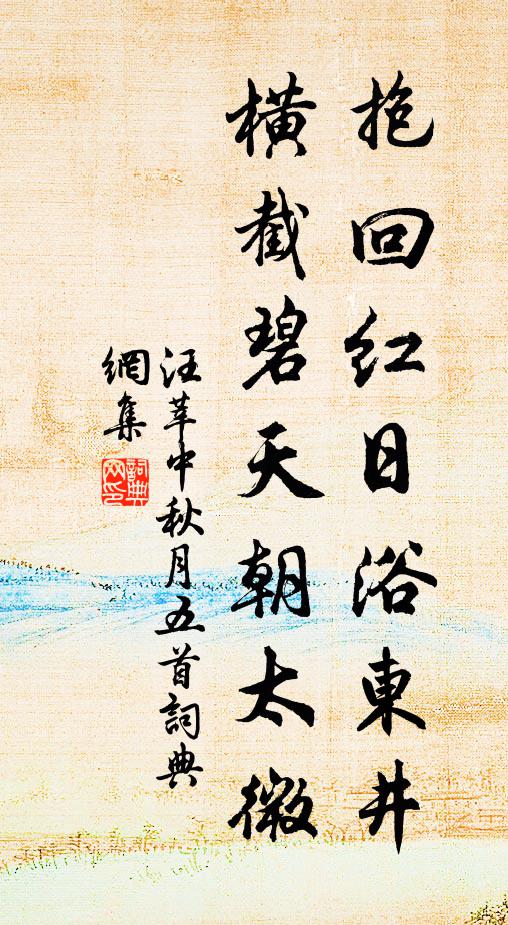 抱回紅日浴東井
橫截碧天朝太微
汪莘中秋月五首詞典
網集
詞典網印